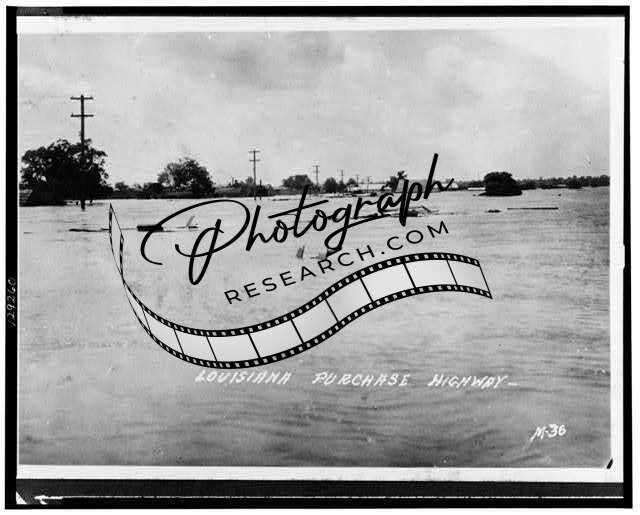 Photograph
RESEARCH.COM
129260
LOUISIANA PURCHASE HIGHWAY-
M-36